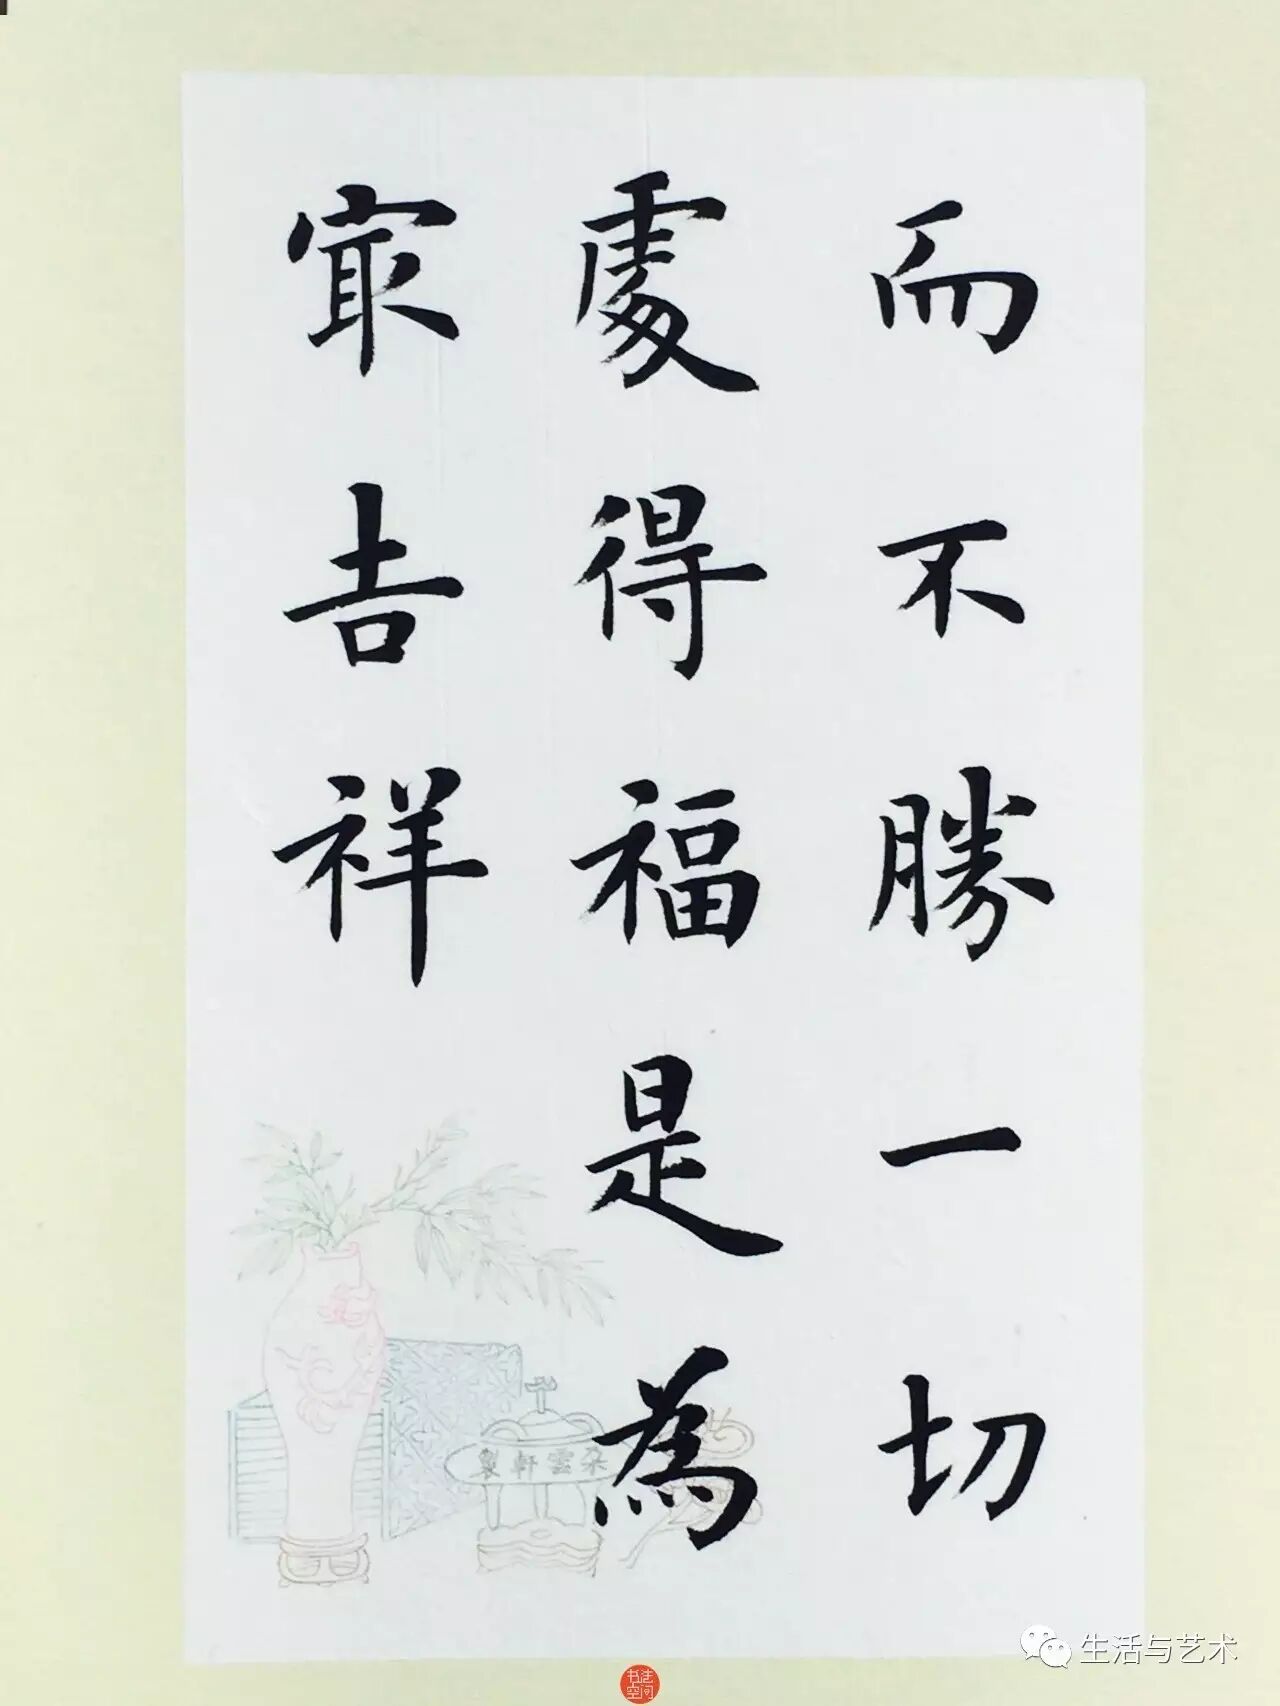 而不勝一切
處得福是為
冣吉祥
朵雲軒製
生活与艺术
书法空间